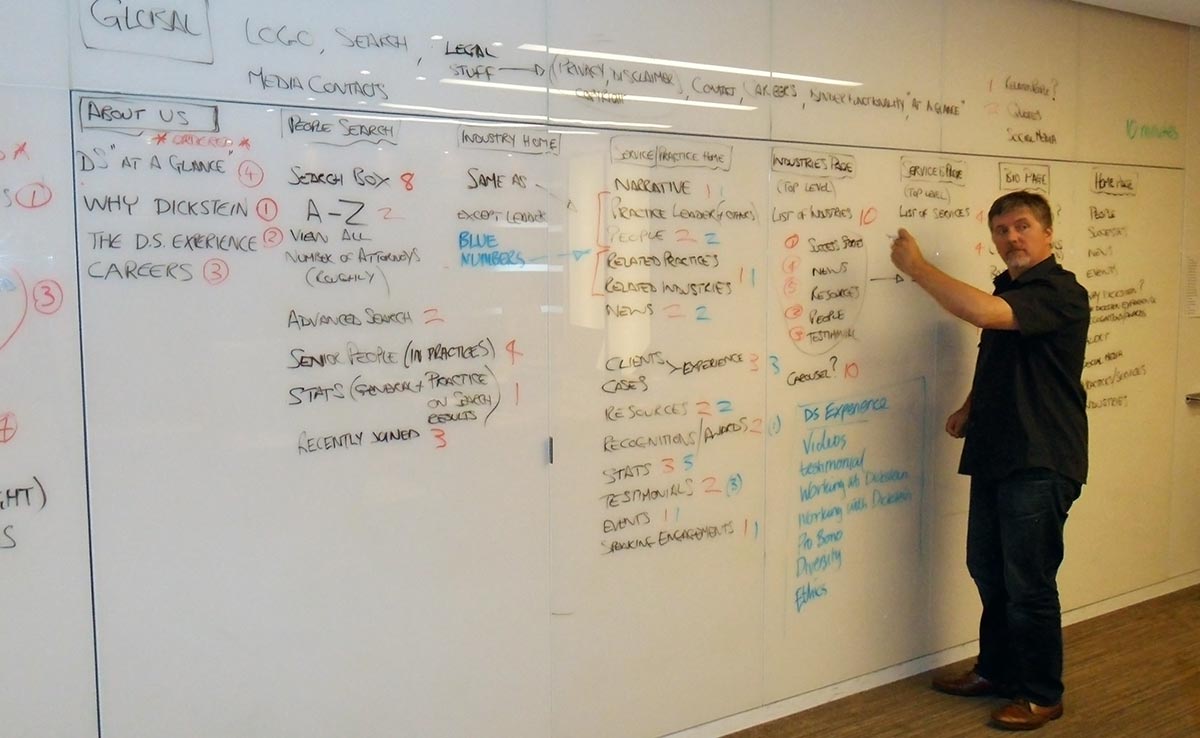 GLOBAL
LOGO, SEARCH, LEGAL STUFF → (PRIVACY, DISCLAIMER), CONTACT, CAREERS, FUNCTIONALITY "AT A GLANCE"
COPYRIGHT
MEDIA CONTACTS
1 RELATED PEOPLE?
2 QUOTES
SOCIAL MEDIA
10 minutes
ABOUT US
* ORDERED *
DS "AT A GLANCE" 4
WHY DICKSTEIN 1
THE D.S. EXPERIENCE 2
CAREERS 3
PEOPLE SEARCH
SEARCH BOX 8
A-Z 2
VIEW ALL
NUMBER OF ATTORNEYS
(ROUGHLY)
ADVANCED SEARCH 2
SENIOR PEOPLE (IN PRACTICES) 4
STATS (GENERAL + PRACTICE
ON SEARCH
RESULTS) 1
RECENTLY JOINED 3
INDUSTRY HOME
SAME AS
EXCEPT LEADER
BLUE
NUMBERS
SERVICE/PRACTICE HOME
NARRATIVE 1 1
PRACTICE LEADER (+ OTHERS)
PEOPLE 2 2
RELATED PRACTICES
RELATED INDUSTRIES 1 1
NEWS 2 2
CLIENTS
EXPERIENCE 3 3
CASES
RESOURCES 2 2
RECOGNITIONS/AWARDS 2 (1)
STATS 3 3
TESTIMONIALS 2 (3)
EVENTS 1 1
SPEAKING ENGAGEMENTS 1 1
INDUSTRIES PAGE
(TOP LEVEL)
LIST OF INDUSTRIES 10
NEWS
RESOURCES
PEOPLE
CAROUSEL? 10
DS Experience
Videos
testimonial
Working at Dickstein
Working with Dickstein
Pro Bono
Diversity
Ethics
SERVICES PAGE
(TOP LEVEL)
LIST OF SERVICES 4
BIO PAGE
HOME PAGE
PEOPLE
NEWS
EVENTS
SOCIAL MEDIA
PRACTICES/SERVICES
INDUSTRIES